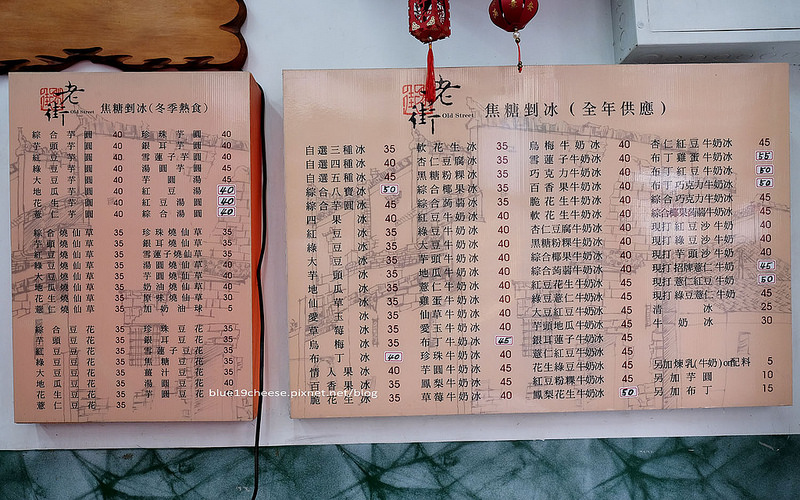 老街 Old Street 焦糖剉冰(冬季熱食)
綜合芋圓 40
芋頭芋圓 40
紅豆芋圓 40
綠豆芋圓 40
大豆芋圓 40
地瓜芋圓 40
花生芋圓 40
薏仁芋圓 40
綜合燒仙草 35
芋頭燒仙草 35
紅豆燒仙草 35
綠豆燒仙草 35
大豆燒仙草 35
地瓜燒仙草 35
花生燒仙草 35
薏仁燒仙草 35
綜合豆花 35
芋頭豆花 35
紅豆豆花 35
綠豆豆花 35
大豆豆花 35
地瓜豆花 35
花生豆花 35
薏仁豆花 35
珍珠芋圓 40
銀耳芋圓 40
雪蓮子芋圓 40
湯圓芋圓 40
芋圓湯 45
紅豆湯 40
紅豆湯圓 40
綜合湯圓 40
珍珠燒仙草 35
銀耳燒仙草 35
雪蓮子燒仙草 35
湯圓燒仙草 35
芋圓燒仙草 40
奶油燒仙草 40
原味燒仙草 30
加奶油球 5
珍珠豆花 35
銀耳豆花 35
雪蓮子豆花 35
焦糖豆花 35
薑汁豆花 35
湯圓豆花 35
芋圓豆花 35
老街 Old Street 焦糖剉冰(全年供應)
自選三種冰 35
自選四種冰 40
自選五種冰 45
綜合八寶冰 50
綜合芋圓冰 45
四果冰 40
紅豆冰 35
綠豆冰 35
大豆冰 35
芋頭冰 35
地瓜冰 35
仙草冰 35
愛玉冰 35
草莓冰 35
烏梅冰 35
布丁冰 40
情人果冰 40
百香果冰 35
脆花生冰 35
軟花生冰 35
杏仁豆腐冰 35
黑糖粉粿冰 35
綜合椰果冰 35
綜合蒟蒻冰 35
紅豆牛奶冰 40
綠豆牛奶冰 40
大豆牛奶冰 40
芋頭牛奶冰 40
地瓜牛奶冰 40
薏仁牛奶冰 40
雞蛋牛奶冰 40
仙草牛奶冰 40
愛玉牛奶冰 40
布丁牛奶冰 45
珍珠牛奶冰 40
芋圓牛奶冰 45
鳳梨牛奶冰 40
草莓牛奶冰 40
烏梅牛奶冰 40
雪蓮子牛奶冰 40
巧克力牛奶冰 40
百香果牛奶冰 40
脆花生牛奶冰 40
軟花生牛奶冰 40
杏仁豆腐牛奶冰 40
黑糖粉粿牛奶冰 40
綜合椰果牛奶冰 40
綜合蒟蒻牛奶冰 40
紅豆花生牛奶冰 45
綠豆薏仁牛奶冰 45
大豆紅豆牛奶冰 45
芋頭地瓜牛奶冰 45
銀耳蓮子牛奶冰 45
薏仁紅豆牛奶冰 45
花生綠豆牛奶冰 45
紅豆粉粿牛奶冰 45
鳳梨花生牛奶冰 50
杏仁紅豆牛奶冰 45
布丁雞蛋牛奶冰 55
布丁紅豆牛奶冰 50
布丁巧克力牛奶冰 50
綜合巧克力牛奶冰 45
綜合椰果蒟蒻牛奶冰 45
現打紅豆沙牛奶 45
現打綠豆沙牛奶 45
現打芋頭沙牛奶 45
現打招牌薏仁牛奶 45
現打薏仁紅豆牛奶 50
現打綠豆薏仁牛奶 45
清冰 25
牛奶冰 30
另加煉乳(牛奶)or配料 5
另加芋圓 10
另加布丁 15
blue19cheese.pixnet.net/blog